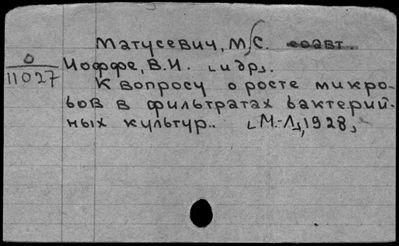 Матусевич, М. С. соавт.
О
11027
Иоффе, В.И. [и др].
К вопросу о росте микро-
бов в фильтратах бактерий-
ных культур.. [М.-Л], 1928,